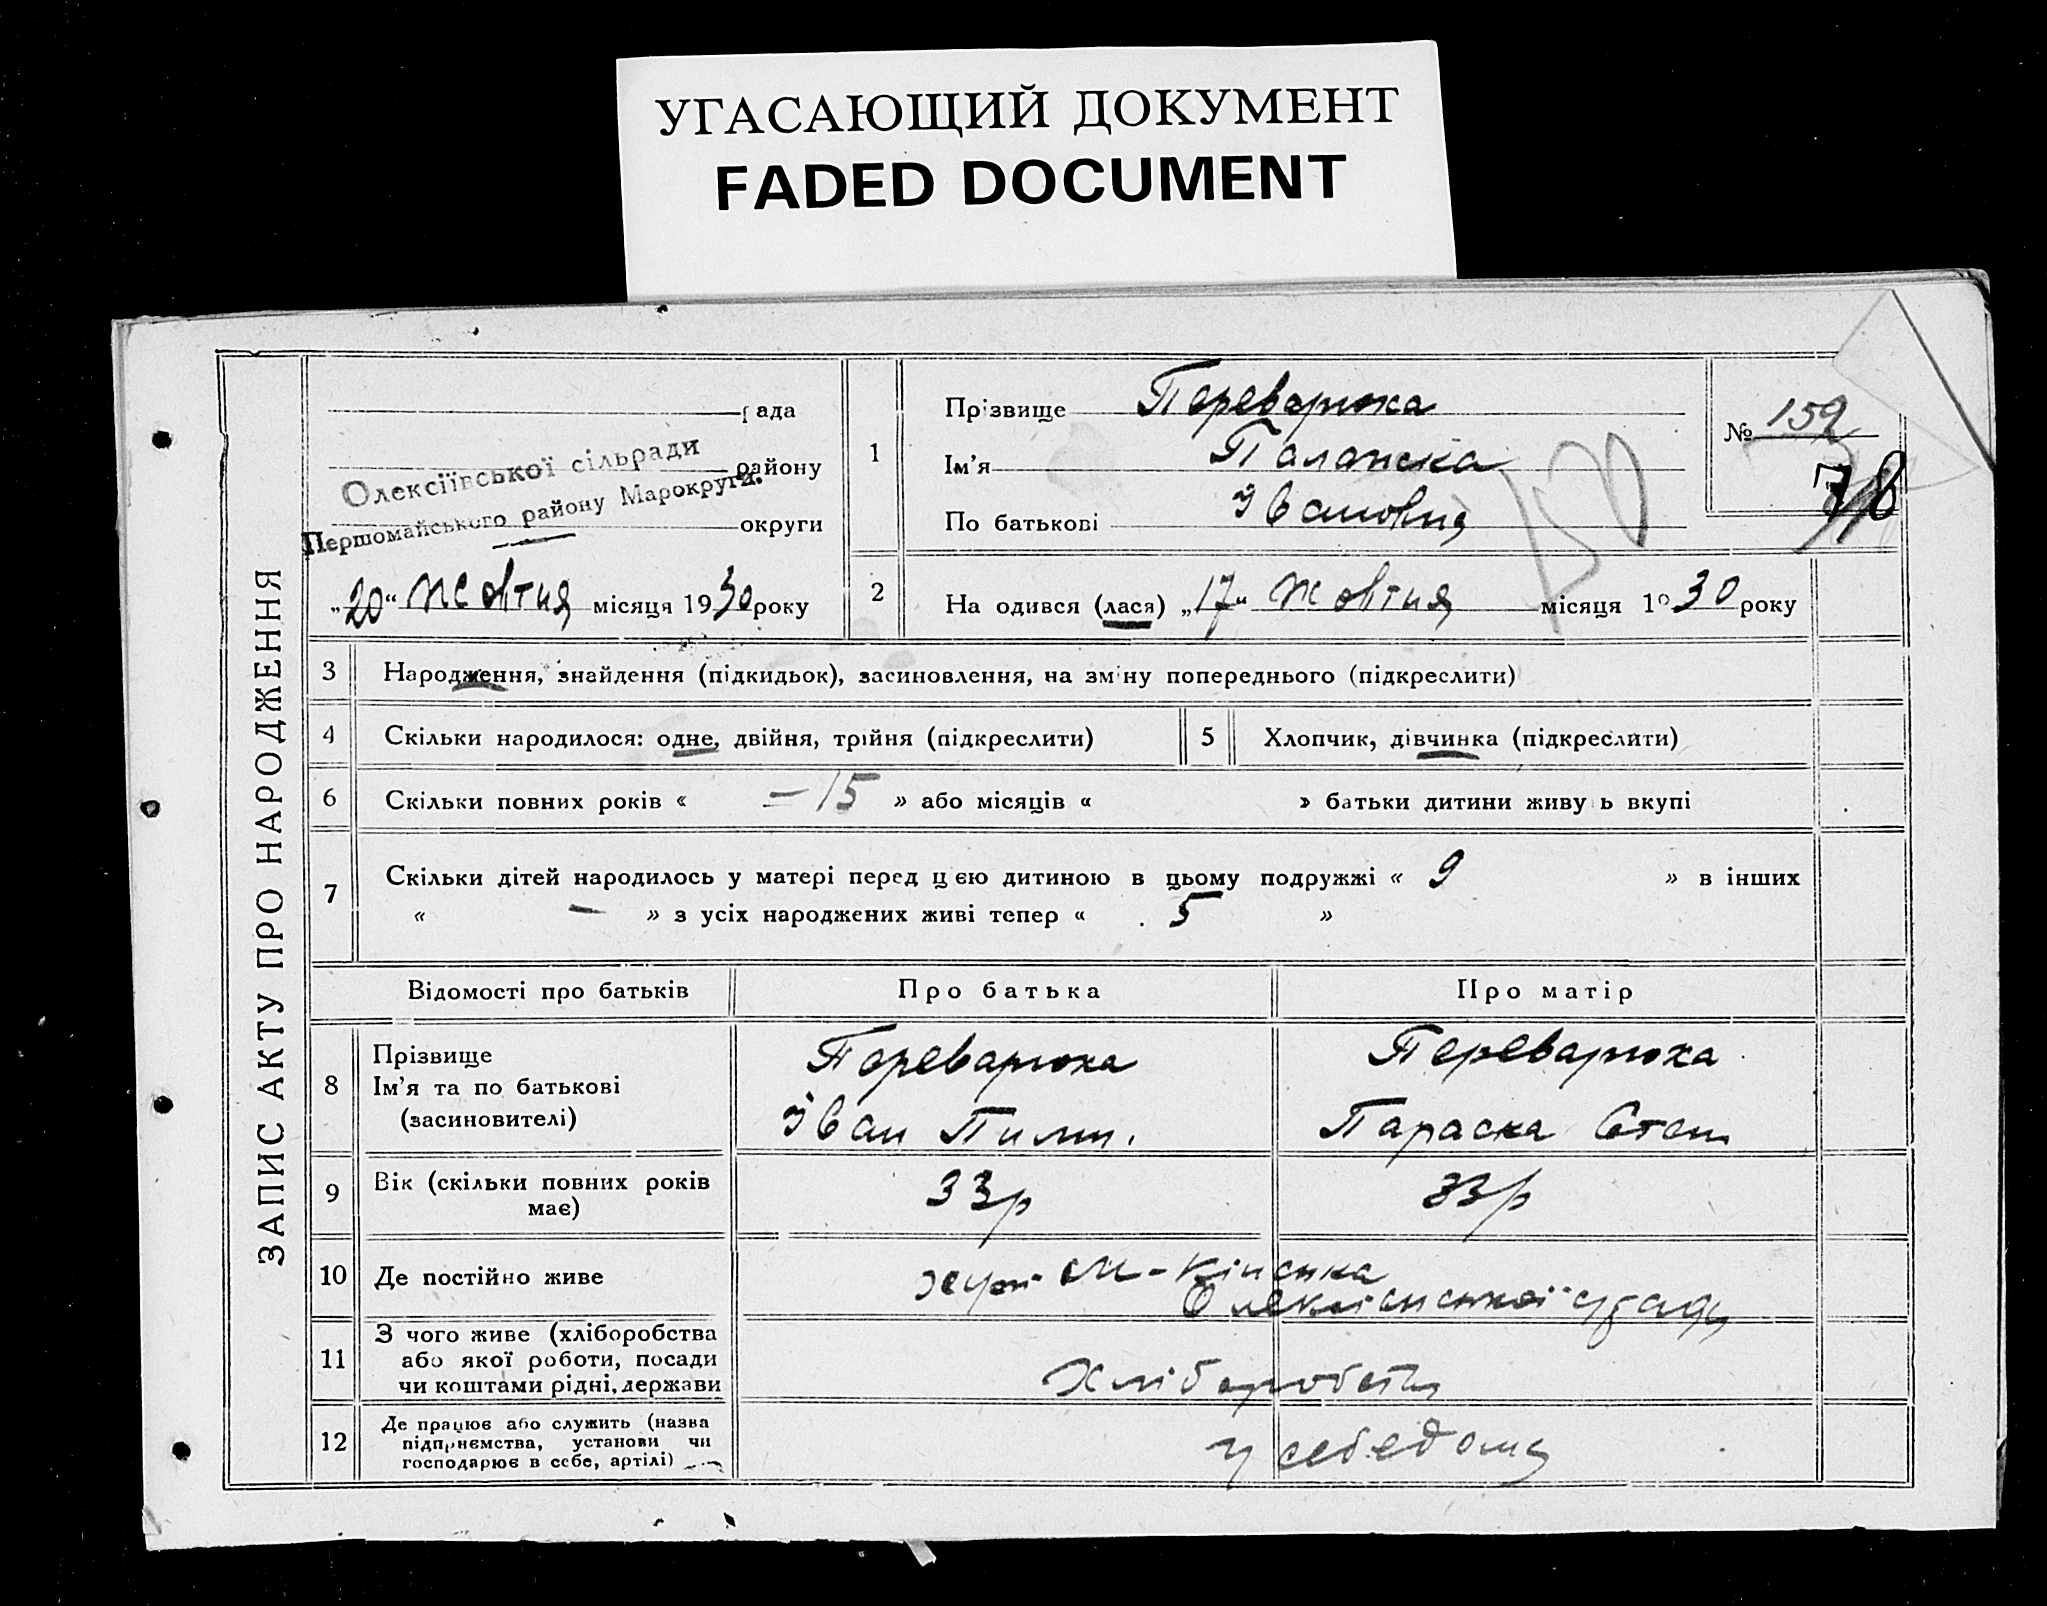 УГАСАЮЩИЙ ДОКУМЕНТ
FADED DOCUMENT
ЗАПИС АКТУ ПРО НАРОДЖЕННЯ
рада
району
округи
Олексіївської сільради
Першомайського району Марокруги.
„20“ Жовтня місяця 1930 року
1
Прізвище Переварюха
Ім'я Палажка
По батькові Івановна
№ 159
2
На одився (лася) „17“ Жовтня місяця 1930 року
3 Народження, знайдення (підкидьок), засиновлення, на зміну попереднього (підкреслити)
4 Скільки народилося: одне, двійня, трійня (підкреслити)
5 Хлопчик, дівчинка (підкреслити)
6 Скільки повних років « — 15 » або місяців « » батьки дитини живу ь вкупі
7 Скільки дітей народилось у матері перед цією дитиною в цьому подружжі « 9 » в інших
« — » з усіх народжених живі тепер « 5 »
Відомості про батьків
Про батька
Про матір
8 Прізвище
Ім'я та по батькові
(засиновителі)
Переварюха
Іван Пилип.
Переварюха
Параска Степ.
9 Вік (скільки повних років
має)
33р
33р
10 Де постійно живе
хут.
Олексіївської с/ради
11 З чого живе (хліборобства
або якої роботи, посади
чи коштами рідні, держави
Хліборобств
12 Де працює або служить (назва
підприємства, установи чи
господарює в себе, артілі)
у себе дома